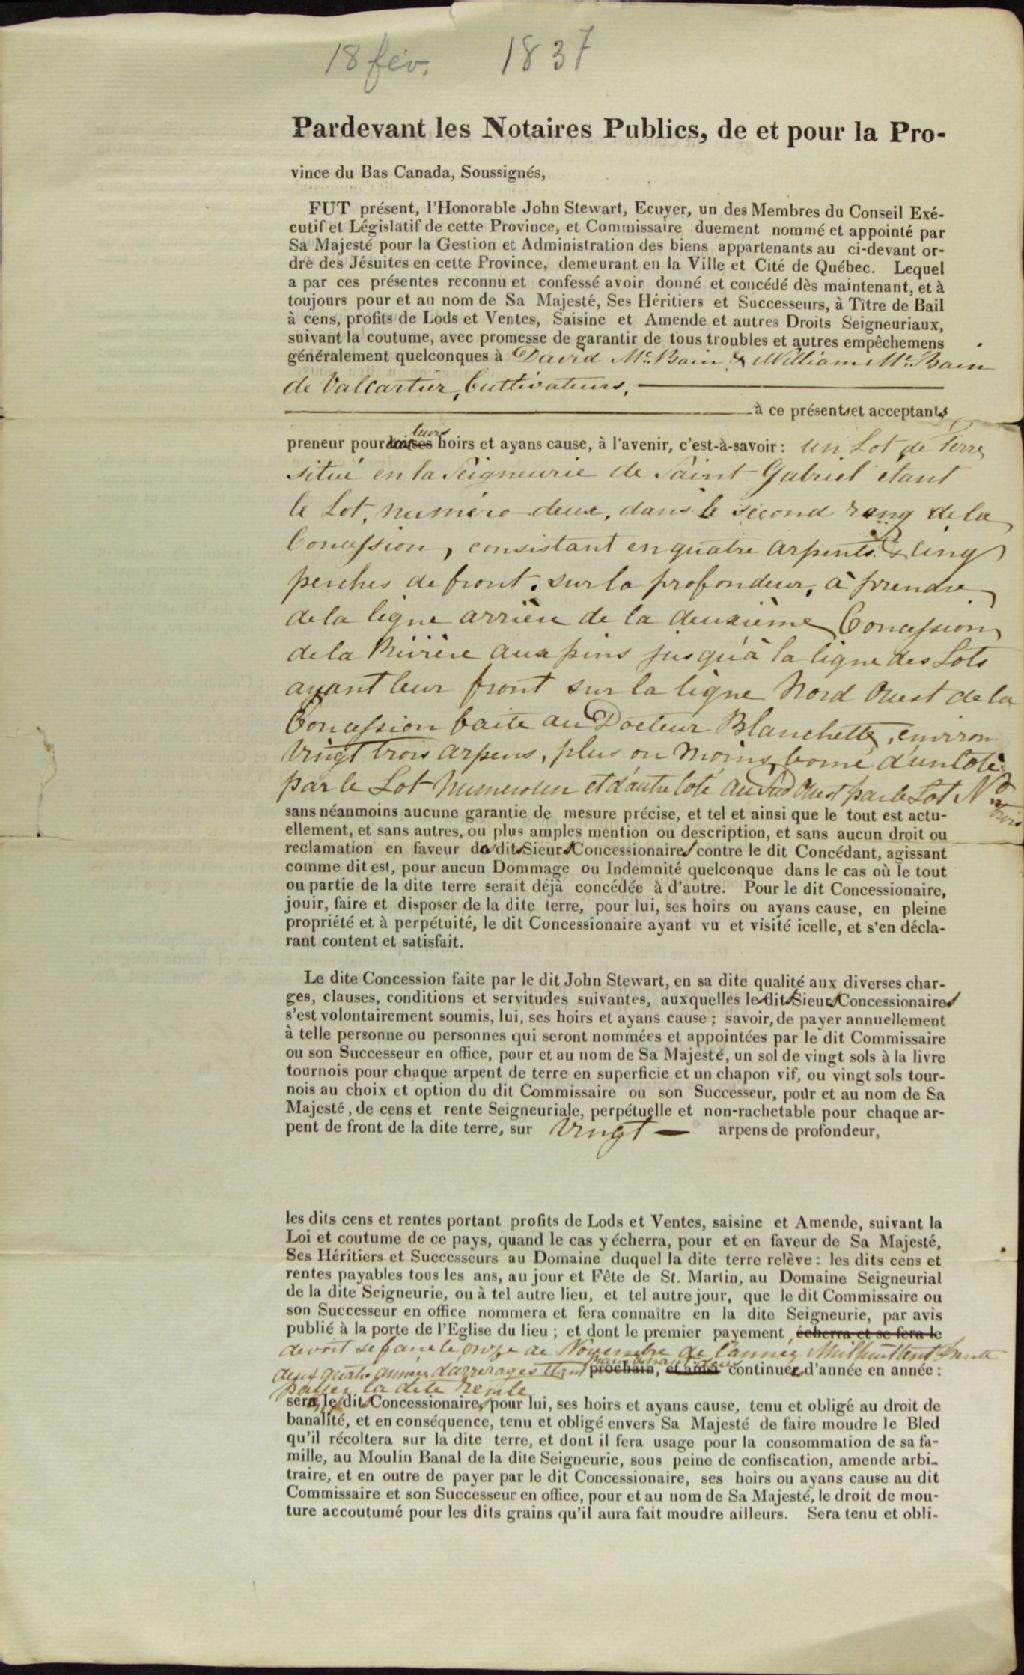 18 fev. 1837
Pardevant les Notaires Publics, de et pour la Pro-
vince du Bas Canada, Soussignés,
FUT présent, l'Honorable John Stewart, Ecuyer, un des Membres du Conseil Exé-
cutif et Législatif de cette Province, et Commissaire duement nommé et appointé par
Sa Majesté pour la Gestion et Administration des biens appartenants au ci-devant or-
dre des Jésuites en cette Province, demeurant en la Ville et Cité de Québec. Lequel
a par ces présentes reconnu et confessé avoir donné et concédé dès maintenant, et à
toujours pour et au nom de Sa Majesté, Ses Héritiers et Successeurs, à Titre de Bail
à cens, profits de Lods et Ventes, Saisine et Amende et autres Droits Seigneuriaux,
suivant la coutume, avec promesse de garantir de tous troubles et autres empêchemens
généralement quelconques à David McBain & William McBain
de Valcartier, Cultivateurs,
à ce présents et acceptants
preneur pour leurs hoirs et ayans cause, à l'avenir, c'est-à-savoir : un Lot de Terre
situé en la Seigneurie de Saint Gabriel étant
le Lot, numéro deux, dans le second rang de la
Concession, consistant en quatre arpents & cinq
perches de front, sur la profondeur, à prendre
de la ligne arrière de la deuxième Concession
de la Rivière aux pins jusqu'à la ligne des Lots
ayant leur front sur la ligne Nord Ouest de la
Concession faite au Docteur Blanchette, environ
vingt trois arpens, plus ou moins, borné d'un côté
par le Lot Numero un et d'autre côté au Sud Ouest par le Lot No
trois
sans néanmoins aucune garantie de mesure précise, et tel et ainsi que le tout est actu-
ellement, et sans autres, ou plus amples mention ou description, et sans aucun droit ou
reclamation en faveur des dits Sieurs Concessionaires contre le dit Concédant, agissant
comme dit est, pour aucun Dommage ou Indemnité quelconque dans le cas où le tout
ou partie de la dite terre serait déjà concédée à d'autre. Pour le dit Concessionaire,
jouir, faire et disposer de la dite terre, pour lui, ses hoirs ou ayans cause, en pleine
propriété et à perpétuité, le dit Concessionaire ayant vu et visité icelle, et s'en décla-
rant content et satisfait.
Le dite Concession faite par le dit John Stewart, en sa dite qualité aux diverses char-
ges, clauses, conditions et servitudes suivantes, auxquelles les dits Sieurs Concessionaires
s'est volontairement soumis, lui, ses hoirs et ayans cause ; savoir, de payer annuellement
à telle personne ou personnes qui seront nommées et appointées par le dit Commissaire
ou son Successeur en office, pour et au nom de Sa Majesté, un sol de vingt sols à la livre
tournois pour chaque arpent de terre en superficie et un chapon vif, ou vingt sols tour-
nois au choix et option du dit Commissaire ou son Successeur, pour et au nom de Sa
Majesté, de cens et rente Seigneuriale, perpétuelle et non-rachetable pour chaque ar-
pent de front de la dite terre, sur vingt — arpens de profondeur,
les dits cens et rentes portant profits de Lods et Ventes, saisine et Amende, suivant la
Loi et coutume de ce pays, quand le cas y écherra, pour et en faveur de Sa Majesté,
Ses Héritiers et Successeurs au Domaine duquel la dite terre relève : les dits cens et
rentes payables tous les ans, au jour et Fête de St. Martin, au Domaine Seigneurial
de la dite Seigneurie, ou à tel autre lieu, et tel autre jour, que le dit Commissaire ou
son Successeur en office nommera et fera connaître en la dite Seigneurie, par avis
publié à la porte de l'Eglise du lieu ; et dont le premier payement écherra et se fera le
devoit se faire le onze de Novembre de l'année Mil huit cent trente
deux quatre années d'arrerages étant maintenant dues
prochain, et ainsi continuer d'année en année :
payer la dite rente
sera les dits Concessionaires, pour lui, ses hoirs et ayans cause, tenu et obligé au droit de
banalité, et en conséquence, tenu et obligé envers Sa Majesté de faire moudre le Bled
qu'il récoltera sur la dite terre, et dont il fera usage pour la consommation de sa fa-
mille, au Moulin Banal de la dite Seigneurie, sous peine de confiscation, amende arbi-
traire, et en outre de payer par le dit Concessionaire, ses hoirs ou ayans cause au dit
Commissaire et son Successeur en office, pour et au nom de Sa Majesté, le droit de mou-
ture accoutumé pour les dits grains qu'il aura fait moudre ailleurs. Sera tenu et obli-